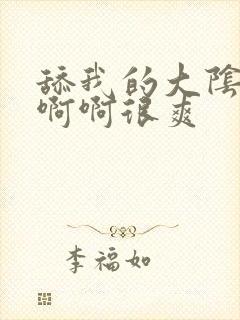 舔我的大陰
啊啊很爽
李福如